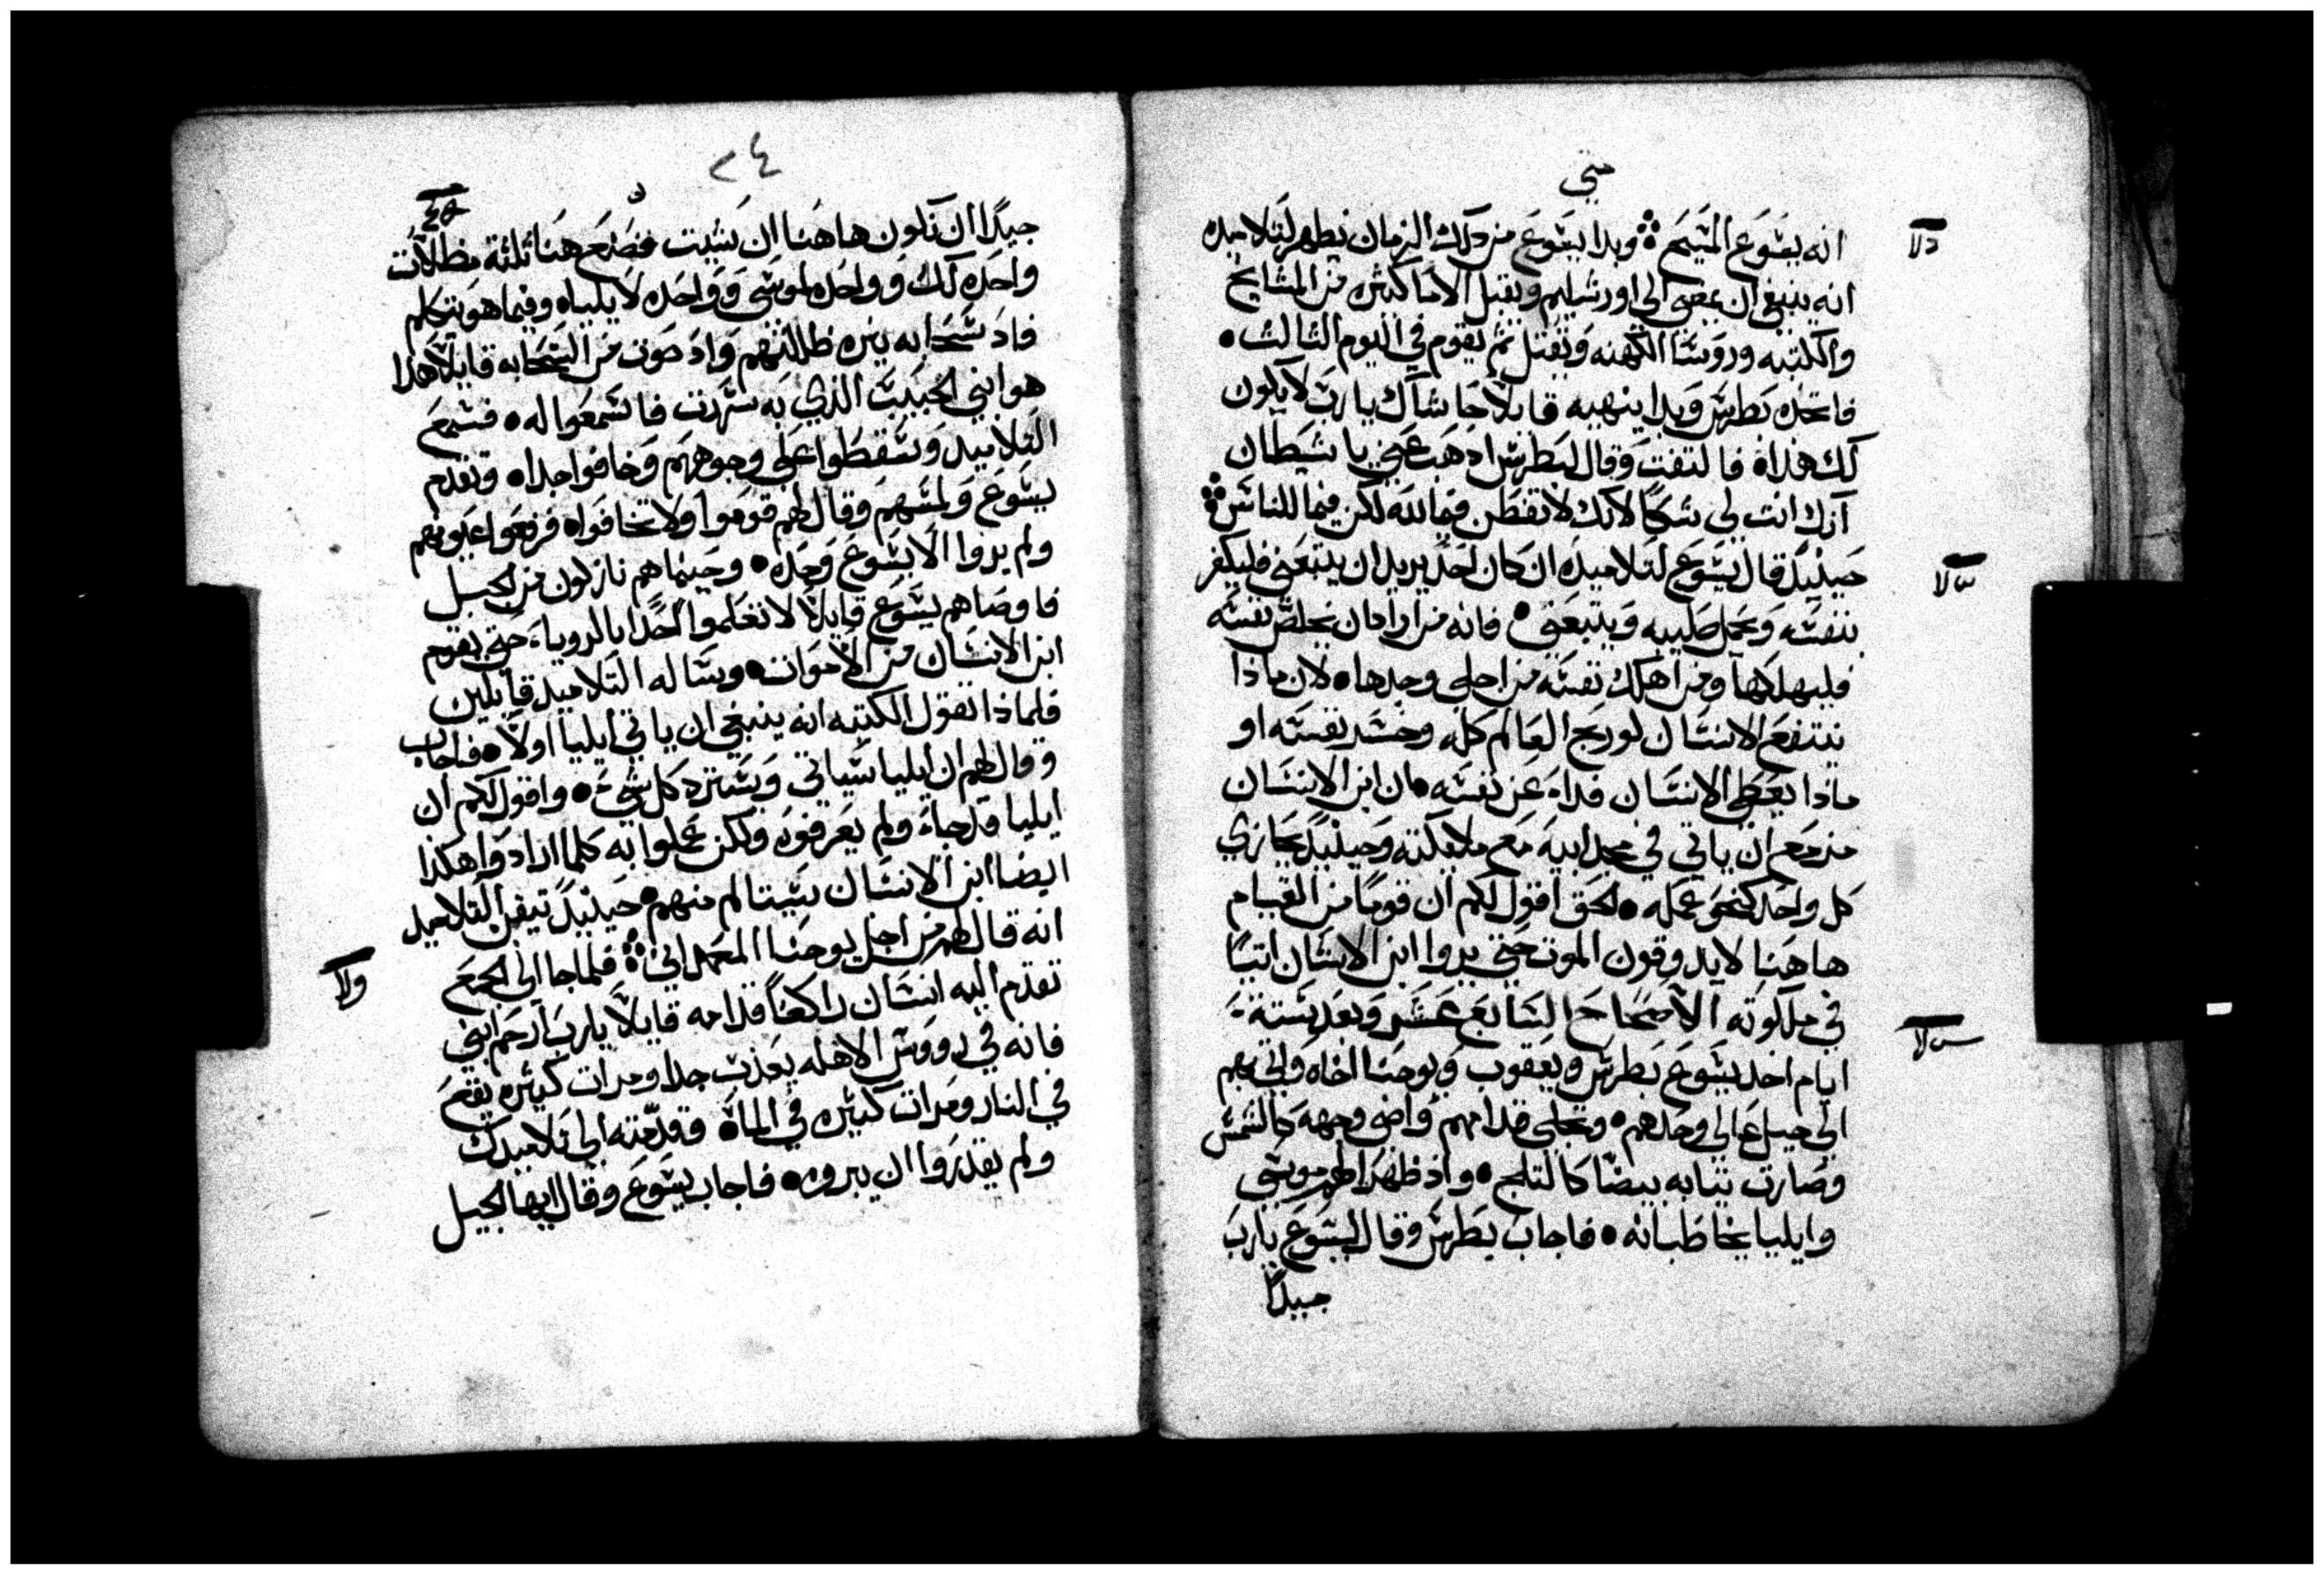 متي
انه يسوع المسيح وبدا يسوع من دلك الزمان يظهر لتلاميده
انه ينبغي ان يمضي الي اورشليم ويقبل الاما كثيره من المشايخ
والكتبه وروسا الكهنه ويقتل ثم يقوم في اليوم الثالث
فاتخده بطرس وبدا ينهيه قايلاً حاشاك يا رب لا يكون
لك هذا فالتفت وقال لبطرس ادهب عني يا شيطان
انك انت لي شكاً لانك لا تفطن فيما لله لكن فيما للناس
حينيدٍ قال يسوع لتلاميده ان كان احد يريد ان يتبعني فليكفر
بنفسه ويحمل صليبه ويتبعني فانه من اراد ان يخلص نفسه
فليهلكها ومن اهلك نفسه من اجلي وجدها لان ماذا
ينتفع الانسان لو ربح العالم كله وخسر نفسه او
ماذا يعطي الانسان فداء عن نفسه ان ابن الانسان
مزمع ان ياتي في مجد ابيه مع ملايكته وحينيدٍ يجازي
كل واحد كنحو عمله لحق اقول لكم ان قوماً من القيام
هاهنا لا يدوقون الموت حتي يروا ابن الانسان اتياً
في ملكوته الاصحاح السابع عشر وبعد ستة
ايام اخد يسوع بطرس ويعقوب ويوحنا اخاه واتي بهم
الي جبل عالي وحدهم وتجلي قدامهم واضي وجهه كالشمس
وصارت ثيابه بيضا كالثلج واذ ظهرا لهم موسي
وايليا يخاطبانه فاجاب بطرس وقال ليسوع يارب
جيداً
دلا
سلا
٢٤
جيداً ان نكون هاهنا ان شيت فصنع هنا ثلثة مظلات
واحده لك وواحده لموسي وواحده لايلياه وفيما هو يتكلم
فاد سحابه نيره ظللتهم واد صوت من السحابه قايلاً هدا
هو ابني الحبيب الذي به سررت فاسمعوا له فسمع
التلاميد وسقطوا علي وجوههم وخافوا جدا وتقدم
يسوع ولمسهم وقال لهم قوموا ولا تخافوا فرفعوا عيونهم
ولم يروا الا يسوع وحده وحينما هم نازلون من الجبل
فاوصاهم يسوع قايلاً لا تعلموا احداً بالرويا حتي يقوم
ابن الانسان من الاموات وساله التلاميد قايلين
فلماذا تقول الكتبه انه ينبغي ان ياتي ايليا اولاً فاجاب
وقال لهم ان ايليا سياتي ويسترد كل شيء واقول لكم ان
ايليا قد جاء ولم يعرفوه ولكن عملوا به كلما ارادوا هكذا
ايضا ابن الانسان سيتالم منهم حينيدٍ تيقن التلاميد
انه قال لهم من اجل يوحنا المعمداني فلما جا الي الجمع
تقدم اليه انسان راكعاً قدامه قايلاً يارب ارحم ابني
فانه في رووس الاهله يعذب جدا ومرات كثيره يقع
في النار ومرات كثيره في الماء وقدمته الي تلاميدك
ولم يقدروا ان يبروه فاجاب يسوع وقال ايها الجيل
ولا